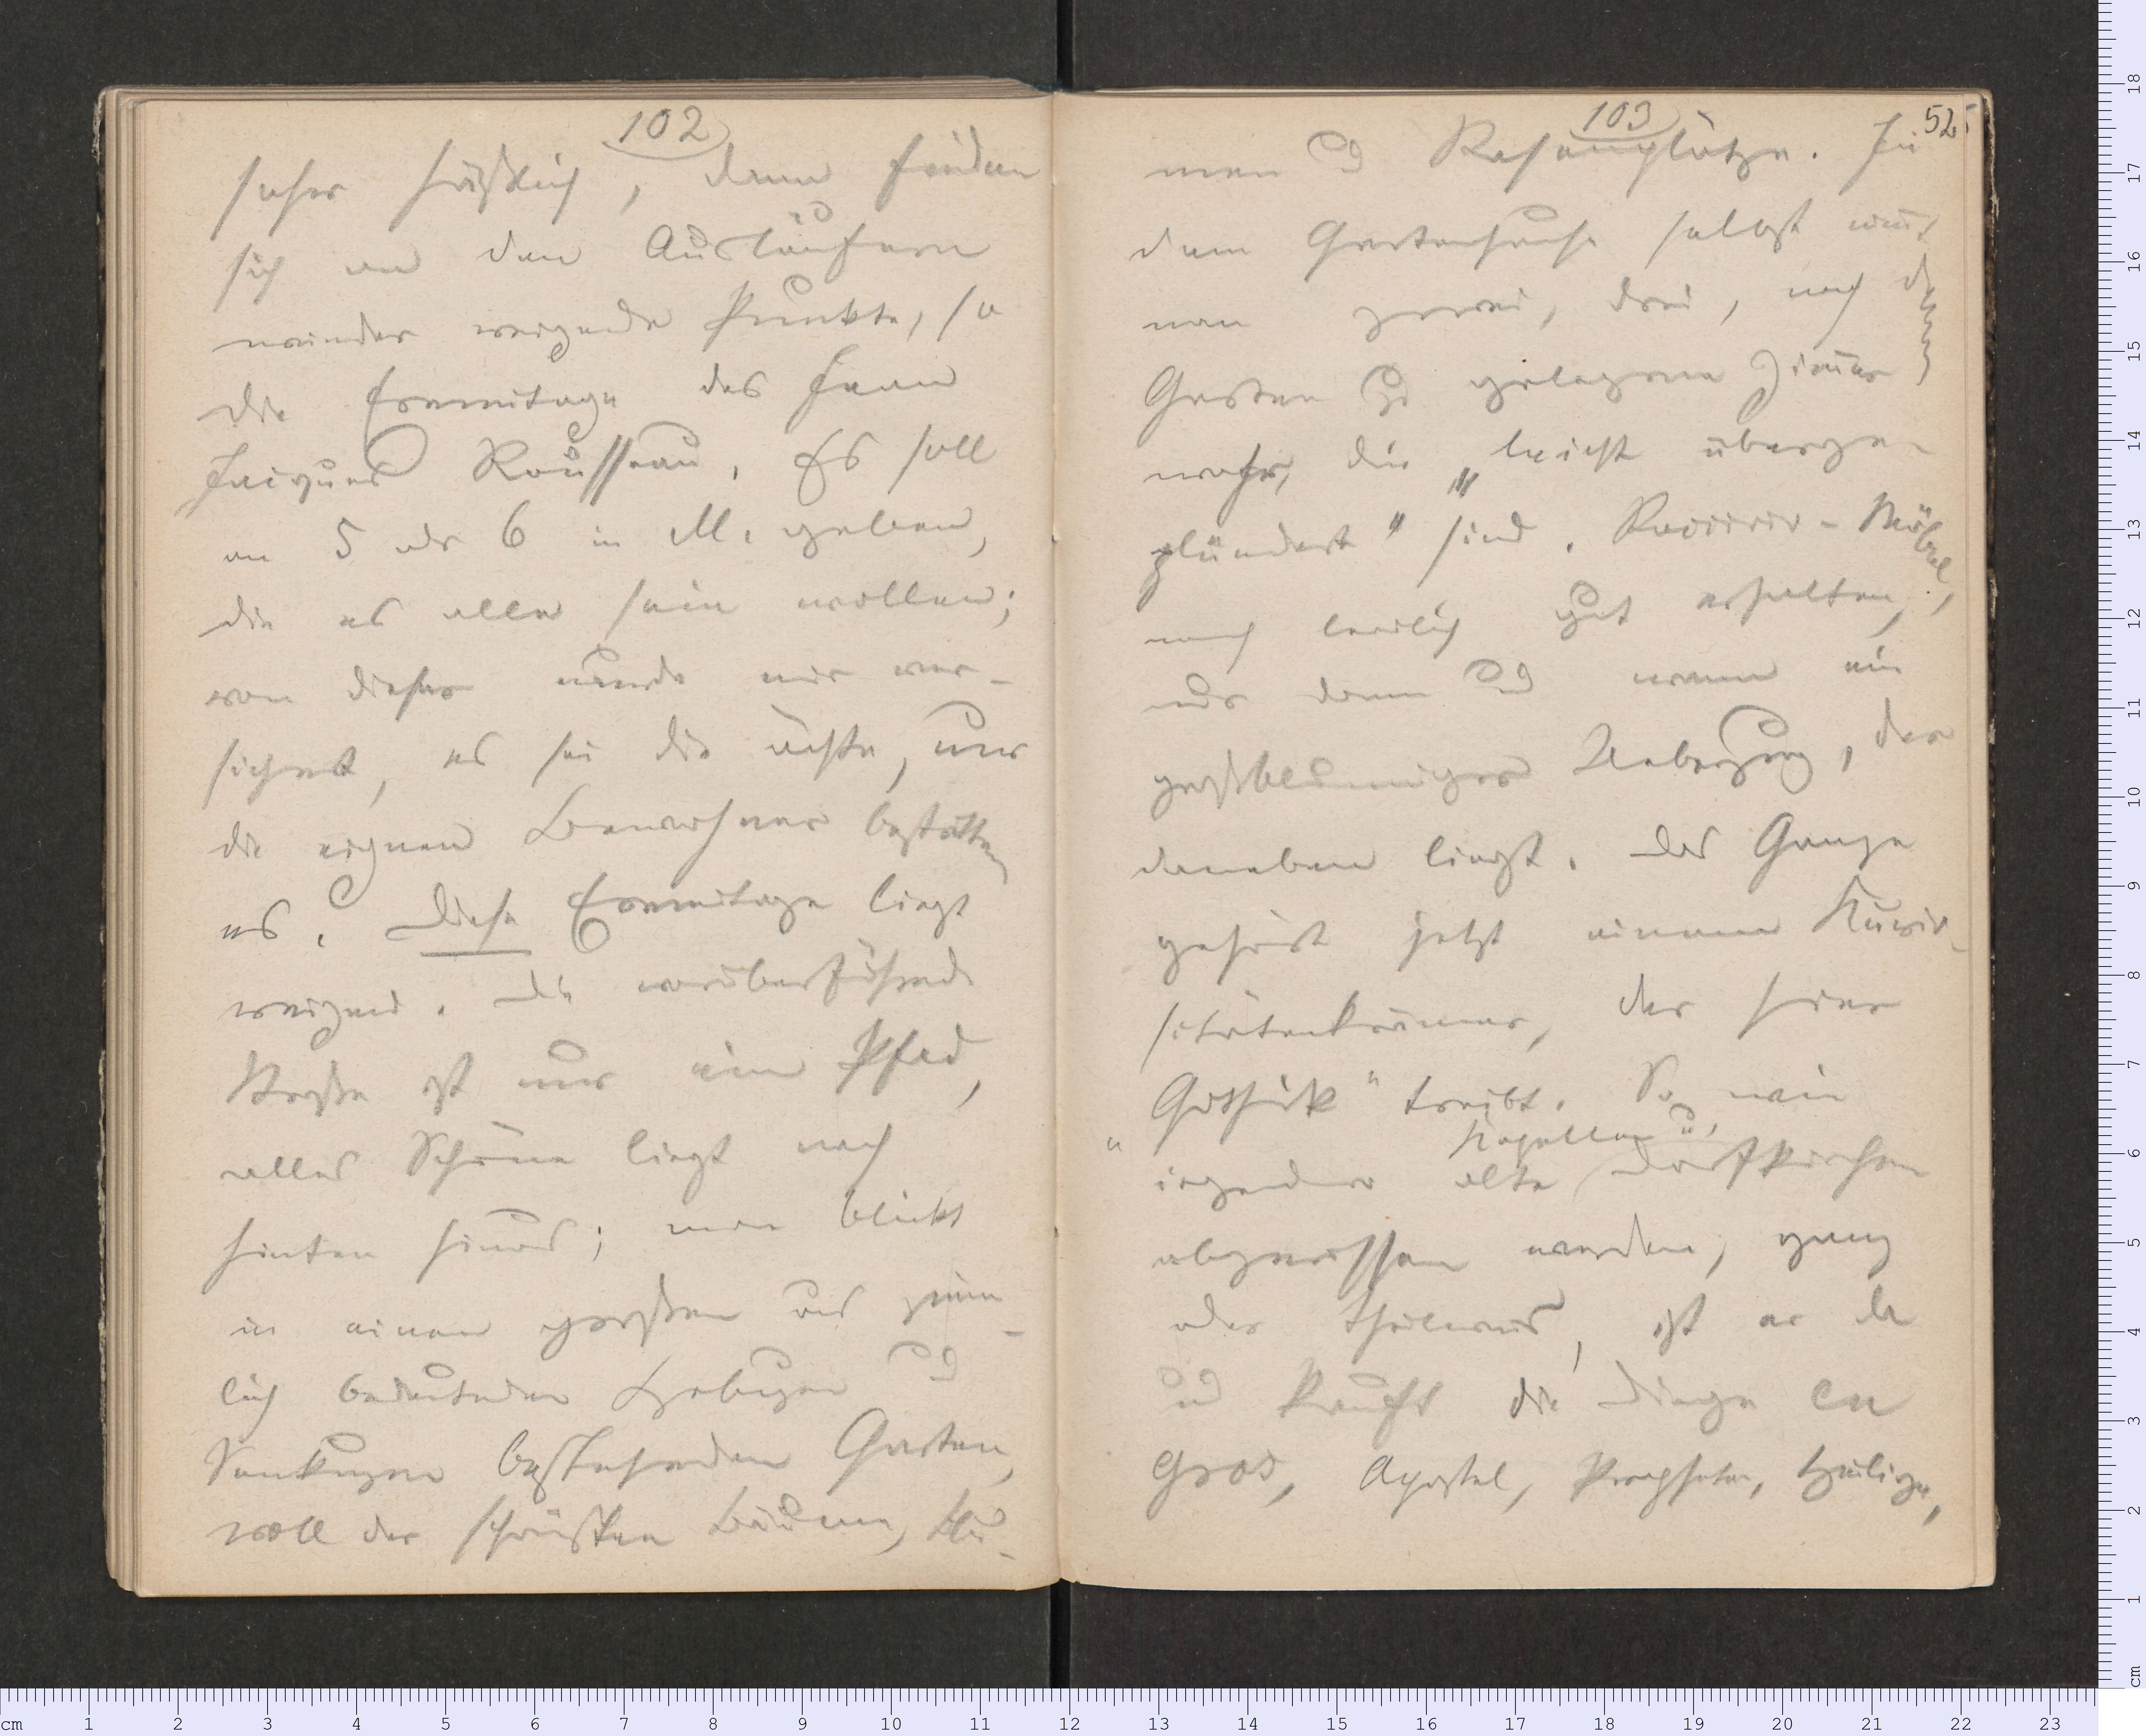 102
sehr häßlich, dann finden
sich an den Ausläufern
wieder reizende Punkte, so
die Eremitage des Jean
Jacques Rousseau. Es soll
an 5 oder 6 in M. geben,
die es alle sein wollen;
von dieser wurde mir ver-
sichert, es sei die ächte, und
die eignen Bewohner bestätten
es. Diese Eremitage liegt
reizend. Die vorüberführende
Straße ist nur ein Pfad,
alles Schöne liegt nach
hinten hinaus; man blickt
in einen großen aus ziem-
lich bedeutenden Hebungen und
Senkungen bestehenden Garten,
voll der schönsten Bäume, Blu-
103
52
men und Rasenplätze. In
dem Gartenhause selbst nimmt
man zwei, drei, nach dem
Garten zu gelegene Zimmer
wahr, die „leicht überge-
plündert“ sind. Rococo-Möbel,
noch leidlich gut erhalten,
nur dann und wann ein
großblumiger Ueberzug, der
daneben liegt. Das Ganze
gehört jetzt einem Kurio-
sitätenkrämer, der hier
„Gothik“ treibt. So wie
irgendwo alte Kapellen u. Dorfkirchen
abgerissen werden, ganz
oder theilweis, ist er da
und kauft die Dinge en
gros, Apostel, Propheten, Heilige,